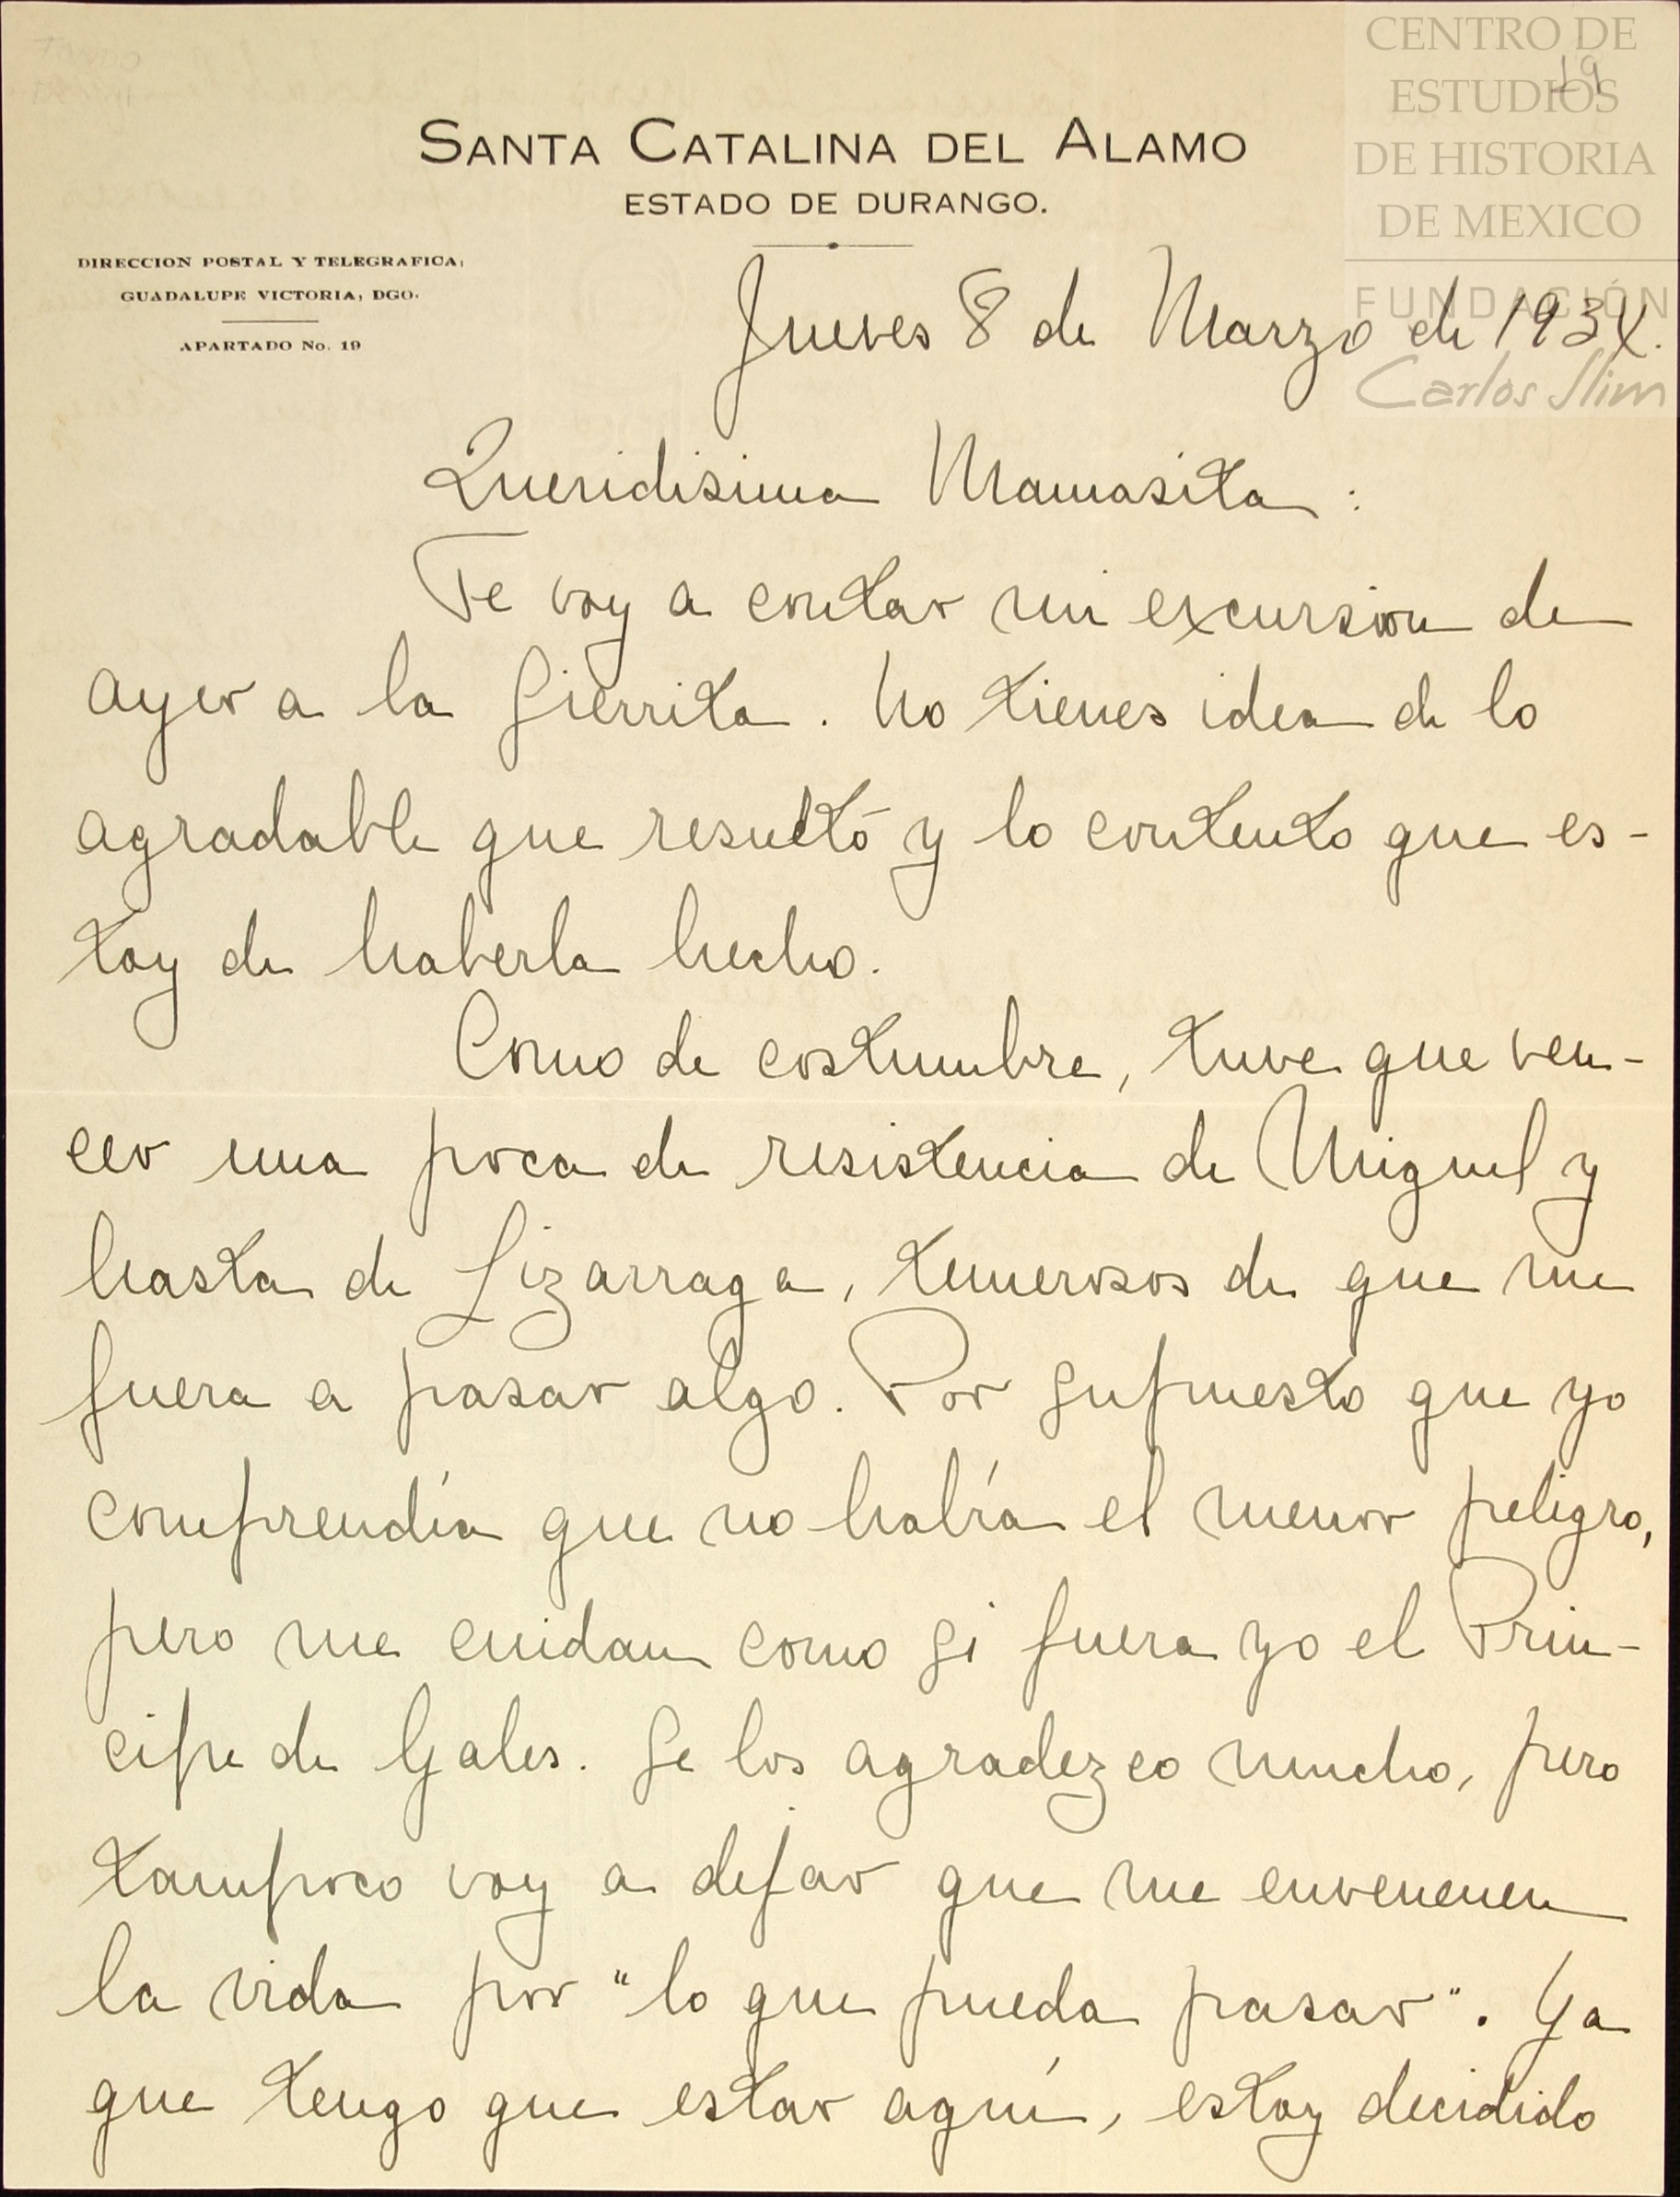 CENTRO DE
ESTUDIOS
DE HISTORIA
DE MEXICO
FUNDACIÓN
Carlos Slim
19
SANTA CATALINA DEL ALAMO
ESTADO DE DURANGO.
DIRECCION POSTAL Y TELEGRAFICA:
GUADALUPE VICTORIA, DGO.
APARTADO No. 19
Jueves 8 de Marzo de 1934.
Queridisima Mamasita:
Te voy a contar mi excursion de
ayer a la Sierrita. No tienes idea de lo
agradable que resultó y lo contento que es-
toy de haberla hecho.
Como de costumbre, tuve que ven-
cer una poca de resistencia de Miguel y
hasta de Lizarraga, temerosos de que me
fuera a pasar algo. Por supuesto que yo
comprendía que no había el menor peligro,
pero me cuidan como si fuera yo el Prin-
cipe de Gales. Se los agradezco mucho, pero
tampoco voy a dejar que me envenenen
la vida por "lo que pueda pasar". Ya
que tengo que estar aquí, estoy decidido